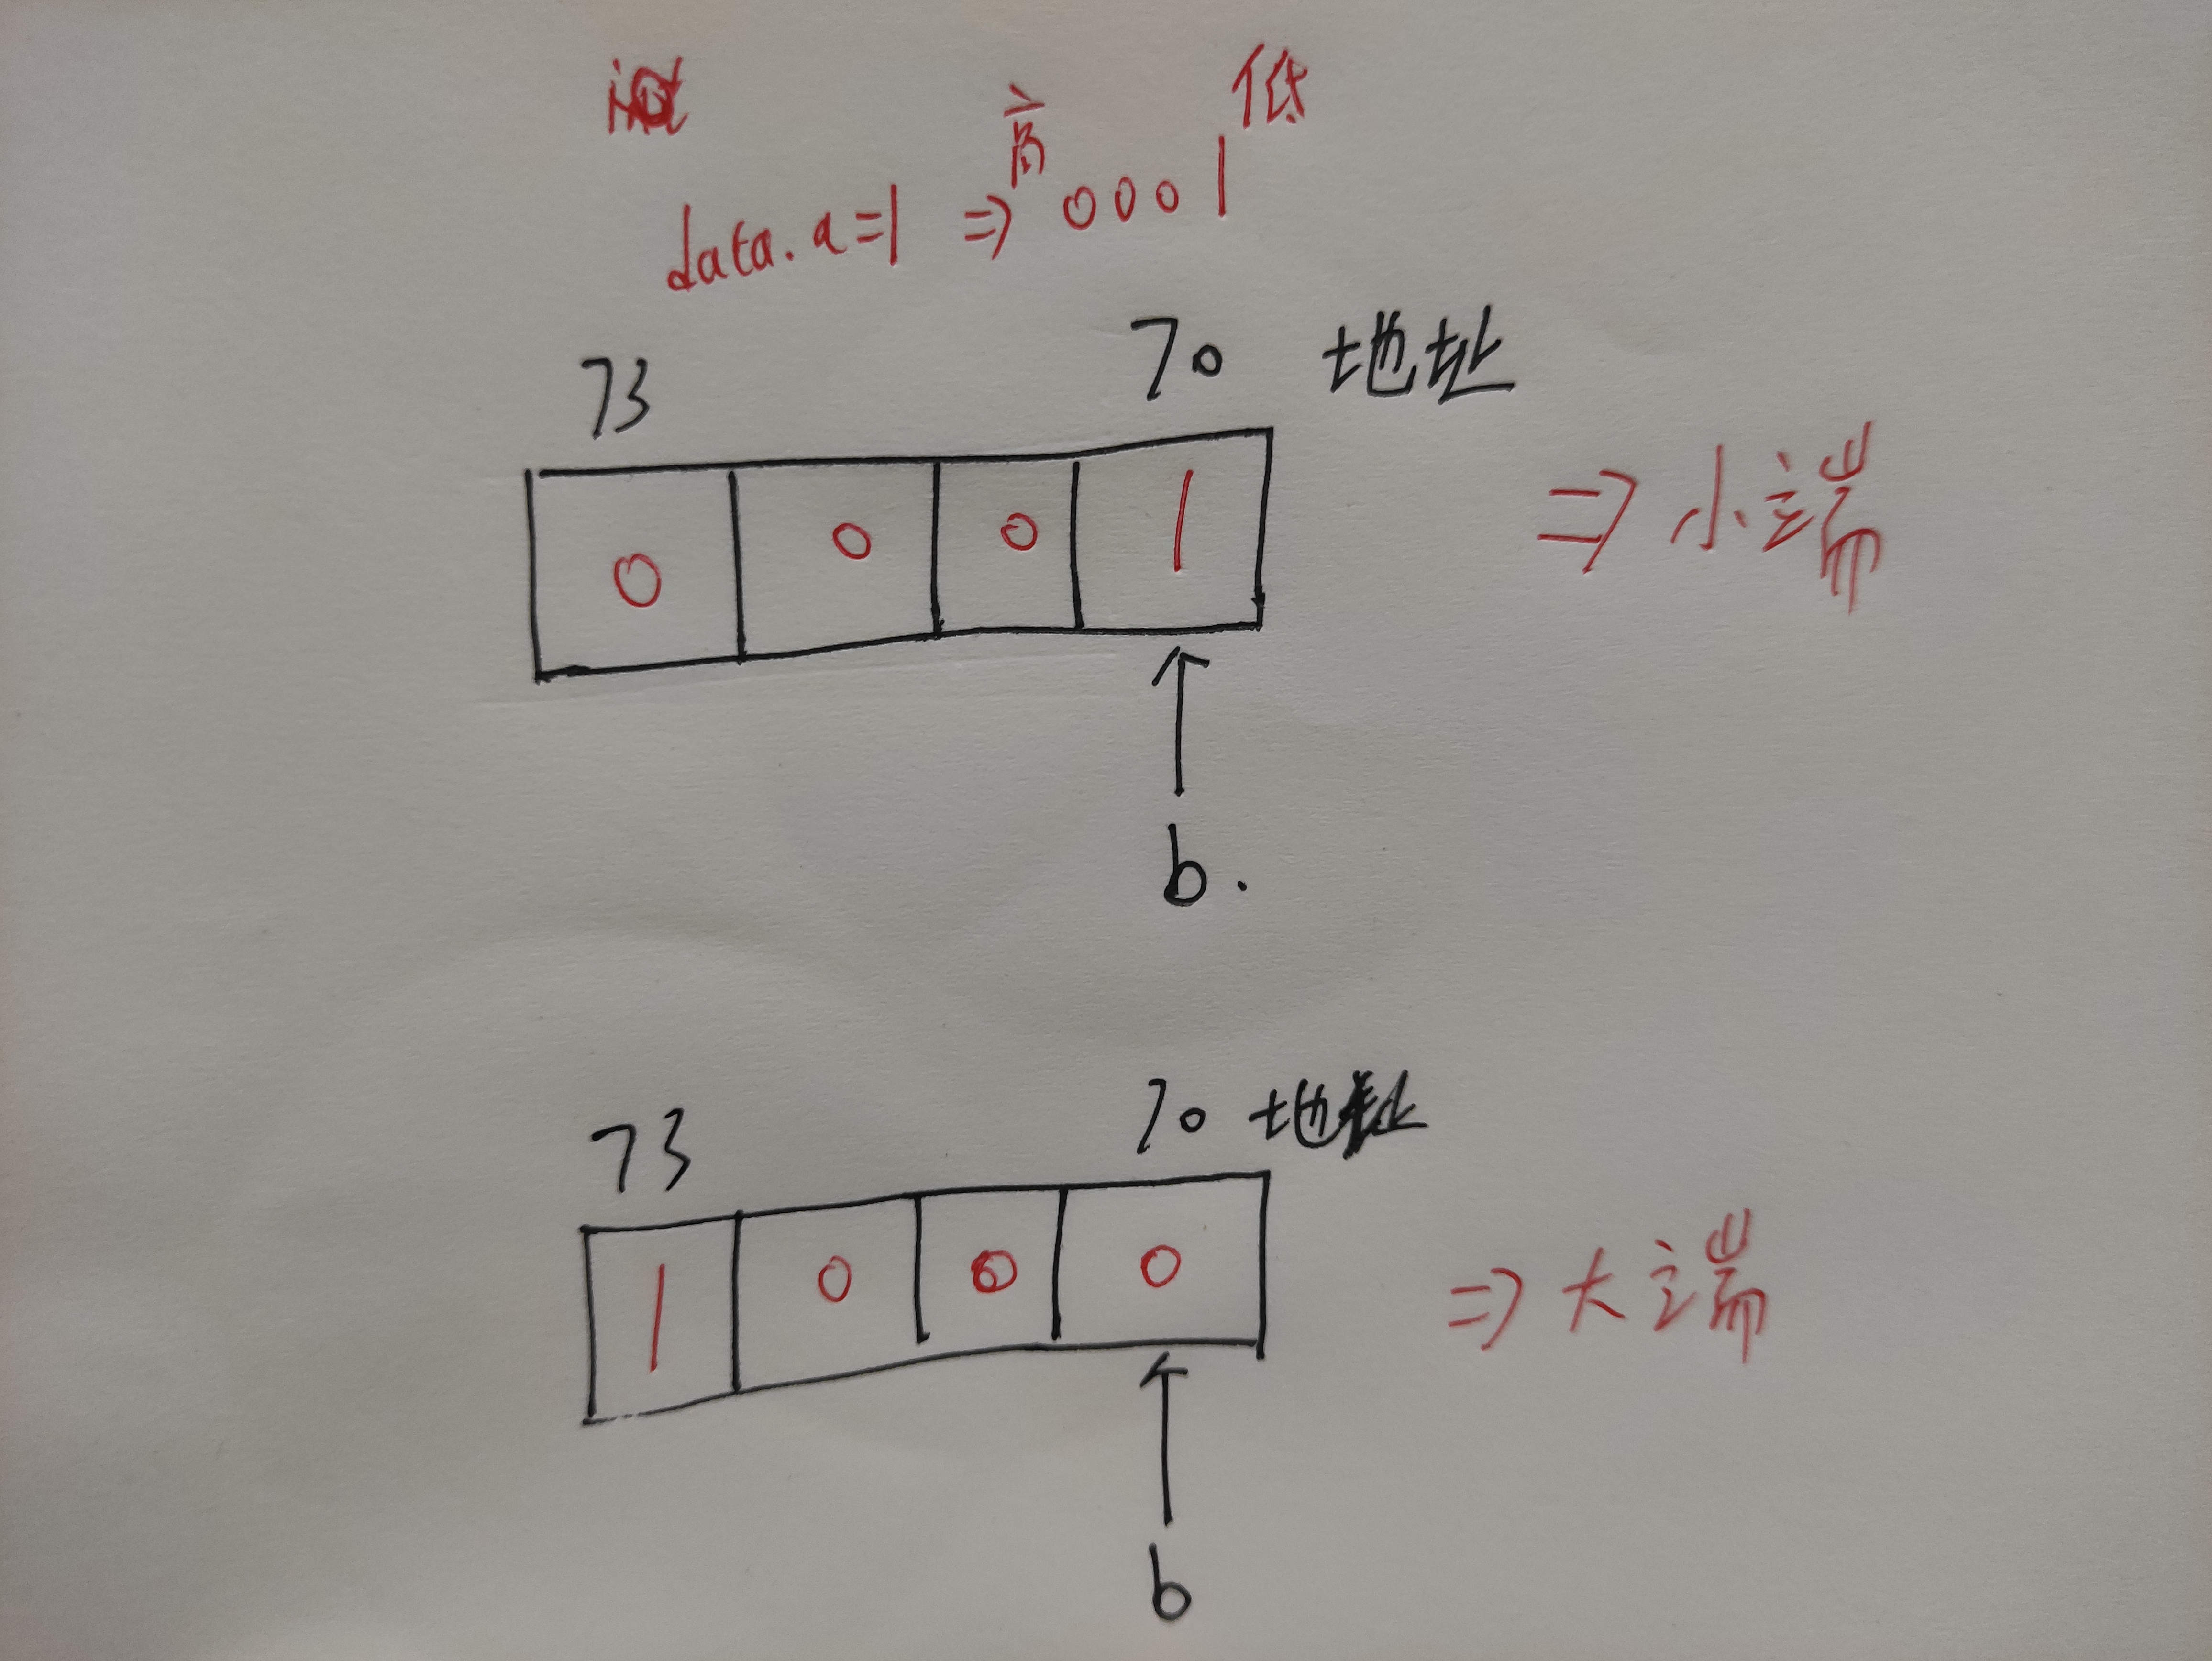 高 低
data.a=1 => 0001
73 70 地址
0 0 0 1 => 小端
b.
73 70 地址
1 0 0 0 => 大端
b